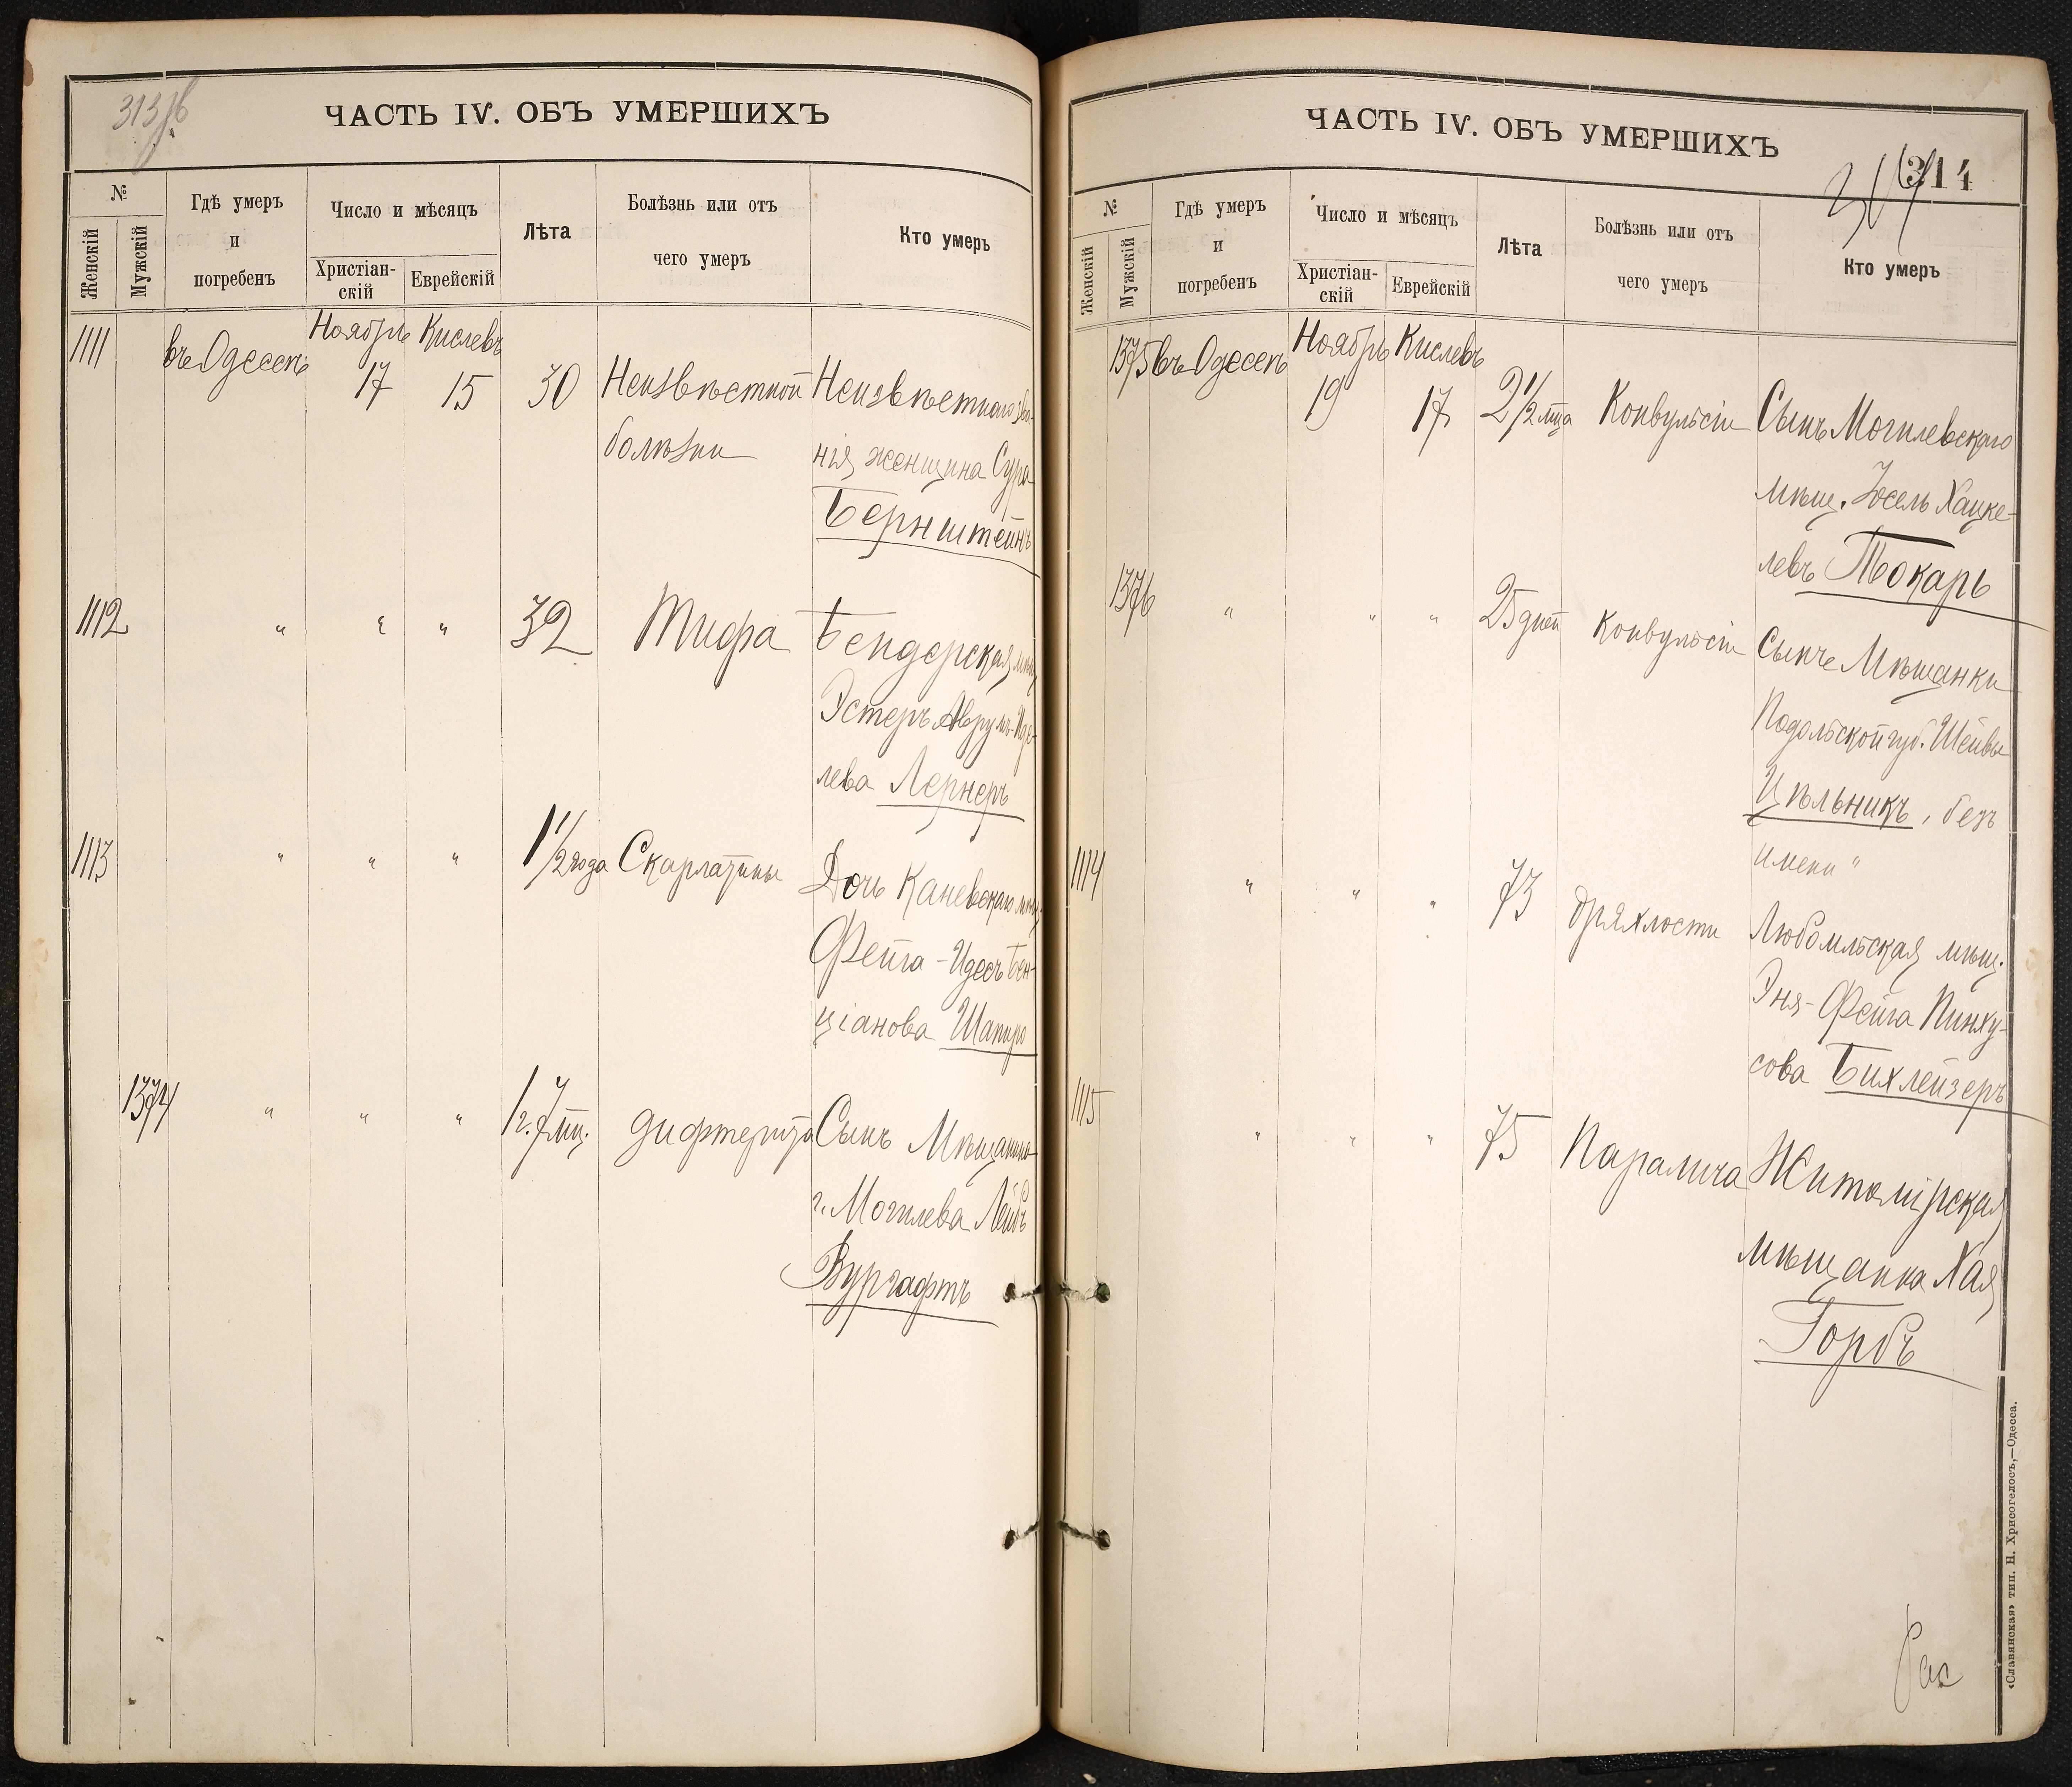 313 об
ЧАСТЬ IV. ОБЪ УМЕРШИХЪ
№
Женскій
Мужскій
Гдѣ умеръ
и
погребенъ
Число и мѣсяцъ
Христіан-
скій
Еврейскій
Лѣта
Болѣзнь или отъ
чего умеръ
Кто умеръ
1111 въ Одессѣ Ноябрь 17 Кислевъ 15 30 Неизвѣстной Неизвѣстнаго зва-
болѣзни нія женщина Сура
Бернштейнъ
1112 " " " 32 Тифа Бендерская мѣщ
Эстеръ Аврумъ-Иде-
лева Лернеръ
1113 " " " 1 1/2 года Скарлатины Дочь Каневскаго мѣщ.
Фейга-Идесъ Бен-
ціанова Шапиро
1374 " " " 1 г. 7 мц. дифтерита Сынъ Мѣщанина
г. Могилева Лейбъ
Вургафтъ
ЧАСТЬ IV. ОБЪ УМЕРШИХЪ
314
314
№
Женскій
Мужскій
Гдѣ умеръ
и
погребенъ
Число и мѣсяцъ
Христіан-
скій
Еврейскій
Лѣта
Болѣзнь или отъ
чего умеръ
Кто умеръ
1375 въ Одессѣ Ноябрь 19 Кислевъ 17 2 1/2 мца Конвульсіи Сынъ Могилевскаго
мѣщ. Іосель Хацке-
левъ Токарь
1376 " " " 25 дней Конвульсіи Сынъ Мѣщанки
Подольской губ. Шейвы
Цѣльникъ, безъ
имени "
1114 " " " 73 дряхлости Любомльская мѣщ.
Эня-Фейга Пинху-
сова Бихлейзеръ
1115 " " " 75 Паралича Житомірская
мѣщанка Хая
Горбъ
«Славянская» тип. Н. Хрисогелосъ,—Одесса.